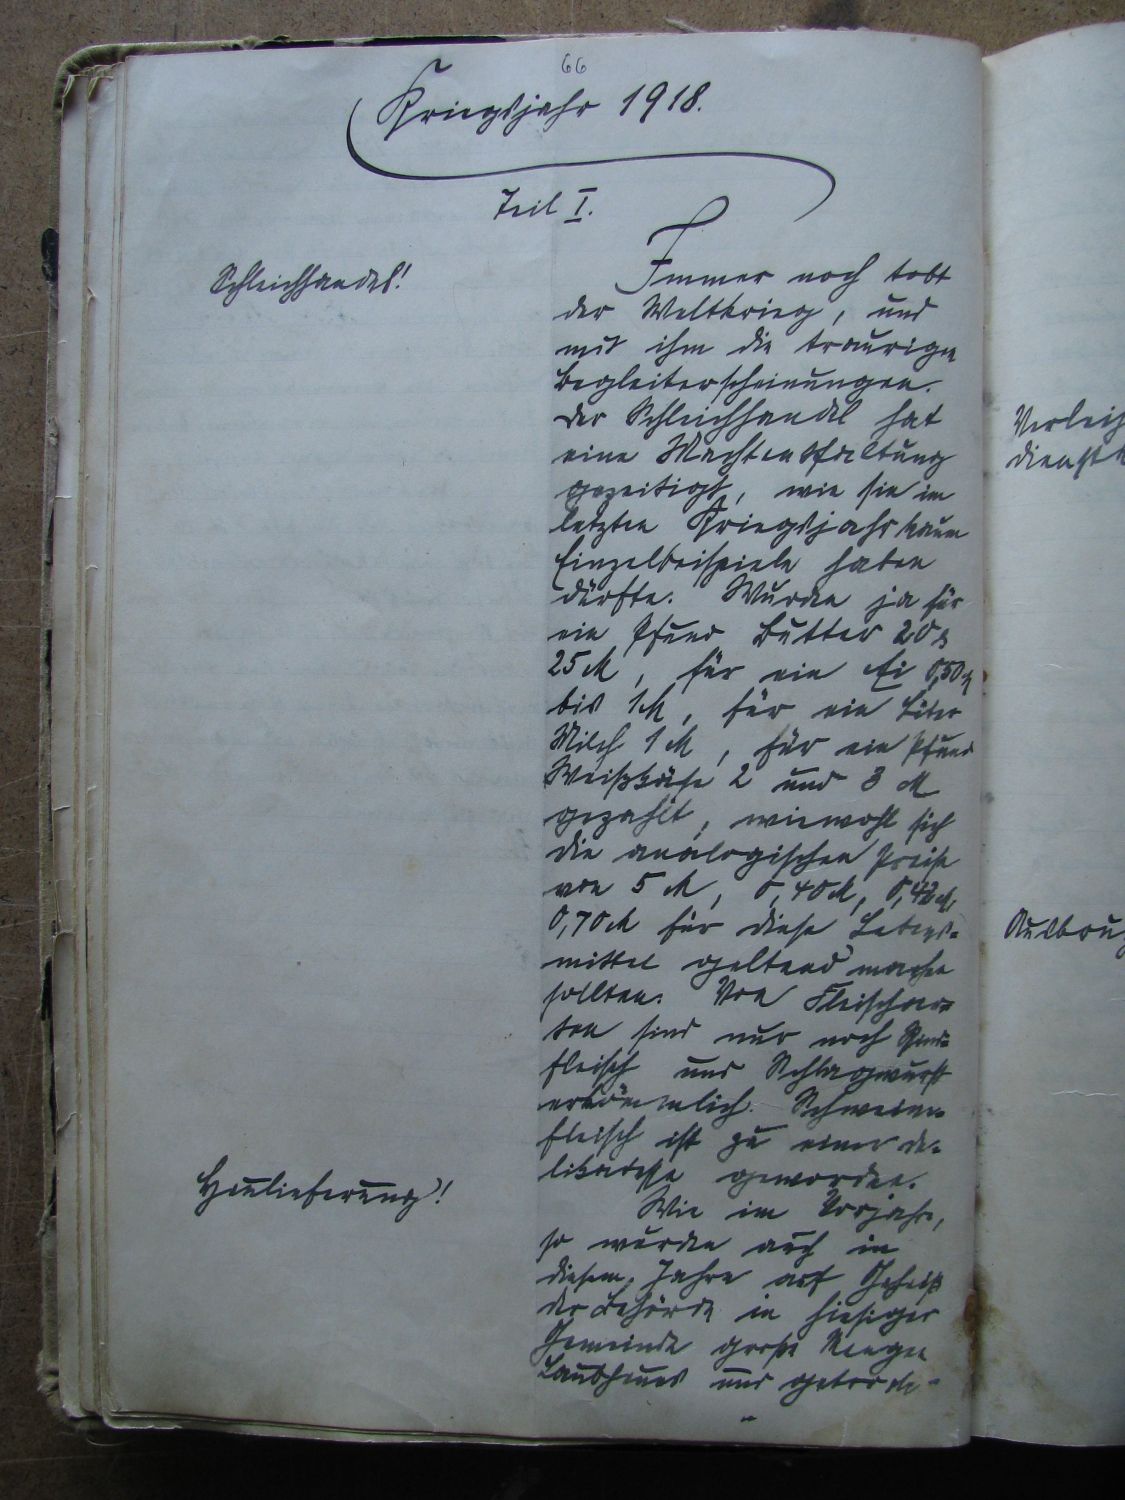 66
Kriegsjahr 1918.
Teil I.
Schleichhandel!
Immer noch tobt
der Weltkrieg, und
mit ihm die traurigen
Begleiterscheinungen.
Der Schleichhandel hat
eine Machtentfaltung
gezeitigt, wie sie im
letzten Kriegsjahr kaum
Einzelbeispiele haben
dürfte. Wurden ja für
ein Pfund Butter 20 –
25 M, für ein Ei 0,50 M
bis 1 M, für ein Liter
Milch 1 M, für ein Pfund
Weißkäse 2 und 3 M
gezahlt, wiewohl sich
die analogischen Preise
von 5 M, 0,40 M, 0,42 M,
0,70 M für diese Lebens-
mittel geltend machen
sollten. Von Fleischar-
ten sind nur noch Rind-
fleisch und Schlagwurst
erkömmlich. Schweine-
fleisch ist zu einer De-
likatesse geworden.
Heulieferung!
Wie im Vorjahre,
so wurden auch in
diesem Jahre auf Geheiß
der Behörde in hiesiger
Gemeinde große Mengen
Laubheues und getrock-
Verleih
dienstk